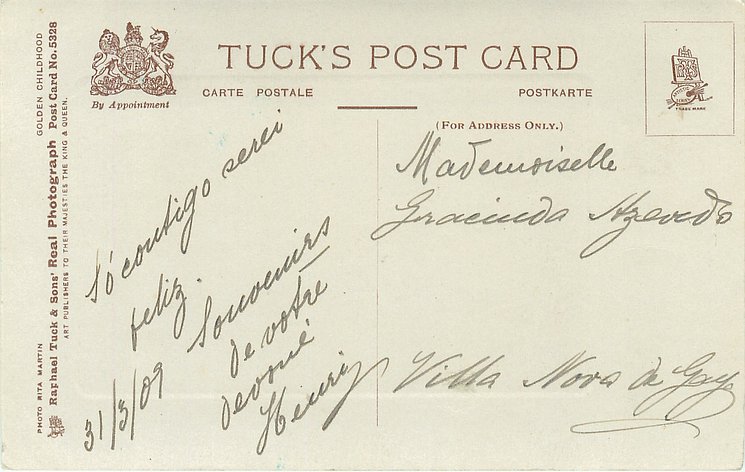 PHOTO RITA MARTIN GOLDEN CHILDHOOD
Raphael Tuck & Sons' Real Photograph Post Card No. 5328
ART PUBLISHERS TO THEIR MAJESTIES THE KING & QUEEN.
By Appointment
TUCK'S POST CARD
CARTE POSTALE
POSTKARTE
TRADE MARK
(FOR ADDRESS ONLY.)
Só contigo serei
feliz.
Souvenirs
de votre
dévoué
Henri
31/3/09
Mademoiselle
Gracinda Azevedo
Villa Nova de Gaya